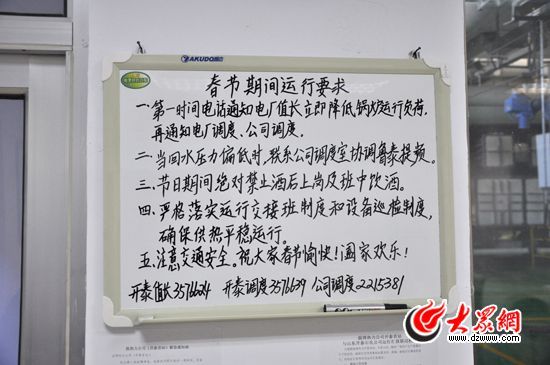 AKUDO
春节期间运行要求
一、第一时间电话通知电厂值长立即降低锅炉运行负荷，
再通知电厂调度、公司调度。
二、当回水压力偏低时，联系公司调度室协调鲁泰提频。
三、节日期间绝对禁止酒后上岗及班中饮酒。
四、严格落实运行交接班制度和设备巡检制度，
确保供热平稳运行。
五、注意交通安全。祝大家春节愉快！阖家欢乐！
开泰值长3576624 开泰调度3576639 公司调度2215381
大众網
www.dzwww.com